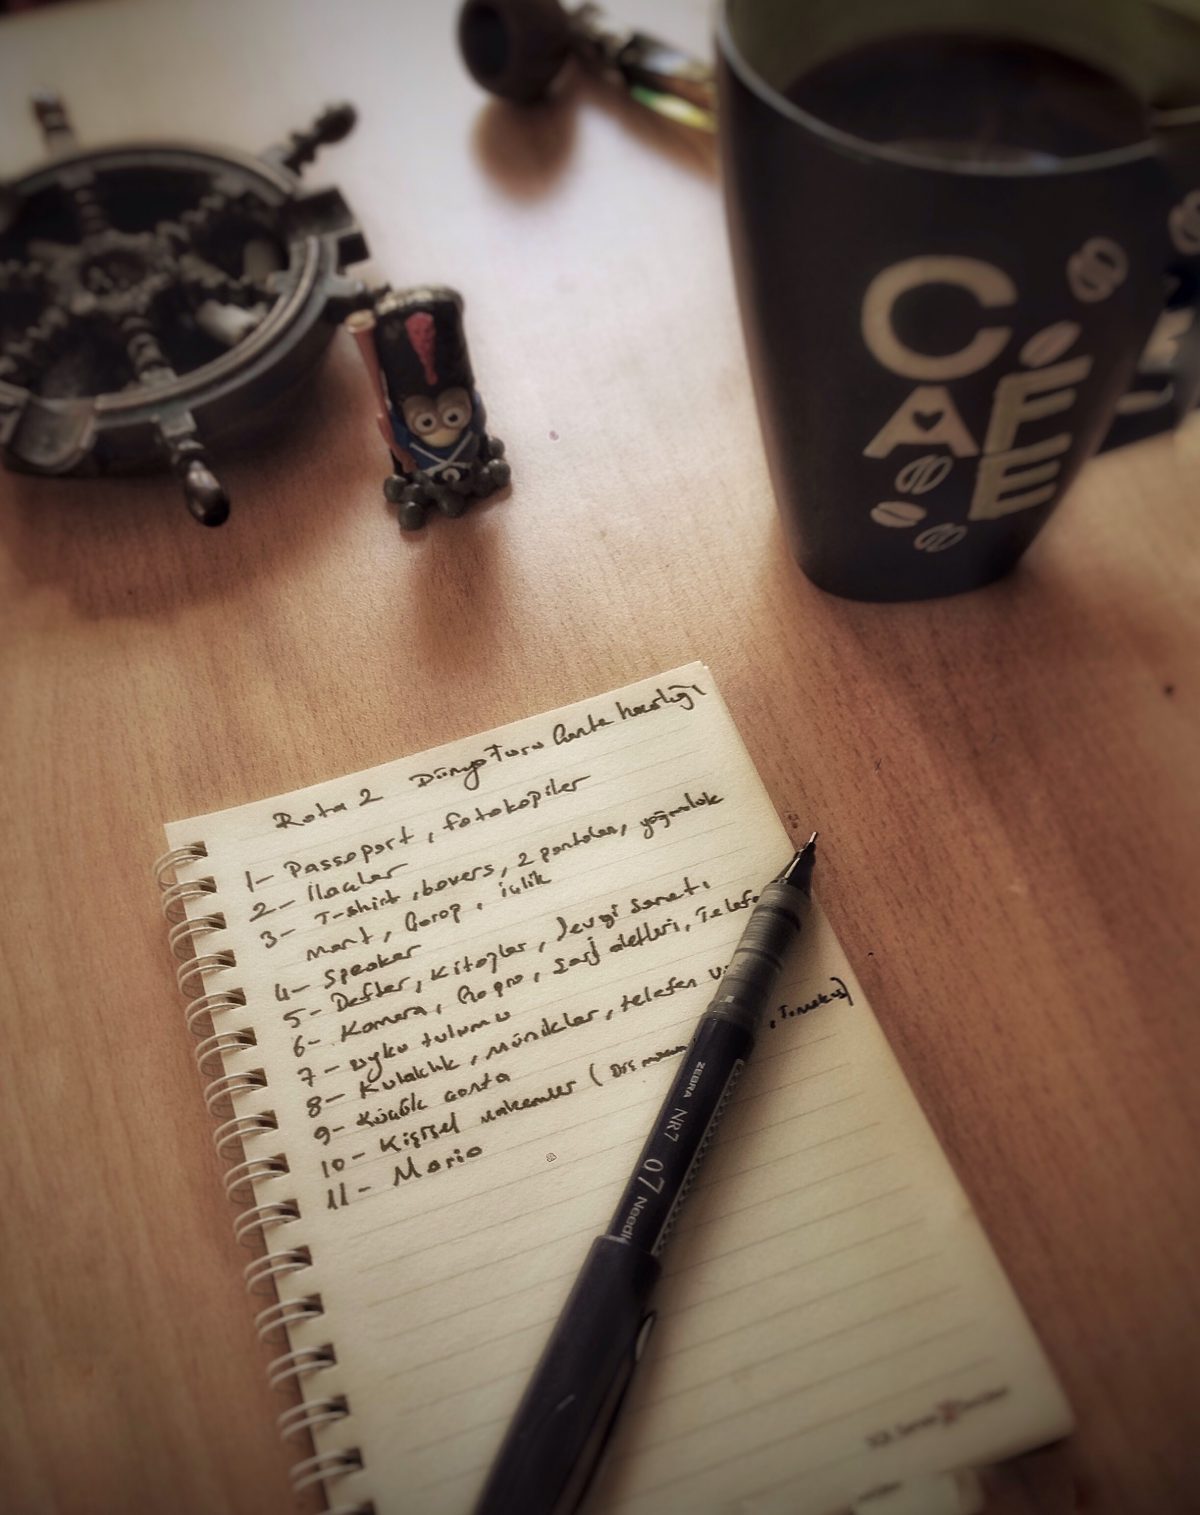 CAFE
Rota 2 Dünya Turu Çanta hazırlığı
1- Passaport, fotokopiler
2- İlaçlar
3- T-shirt, boxers, 2 pantolon, yağmurluk
mont, Çorap, içlik
4- Speaker
5- Defter, Kitaplar, Sevgi Sanatı
6- Kamera, Go pro, Şarj aletleri, Telefo
7- uyku tulumu
8- Kulaklık, Müzikler, telefon
9- Küçük çanta
10- Kişisel malzemeler (
11- Mario
ZEBRA NR7 07 Needl
SQL Server